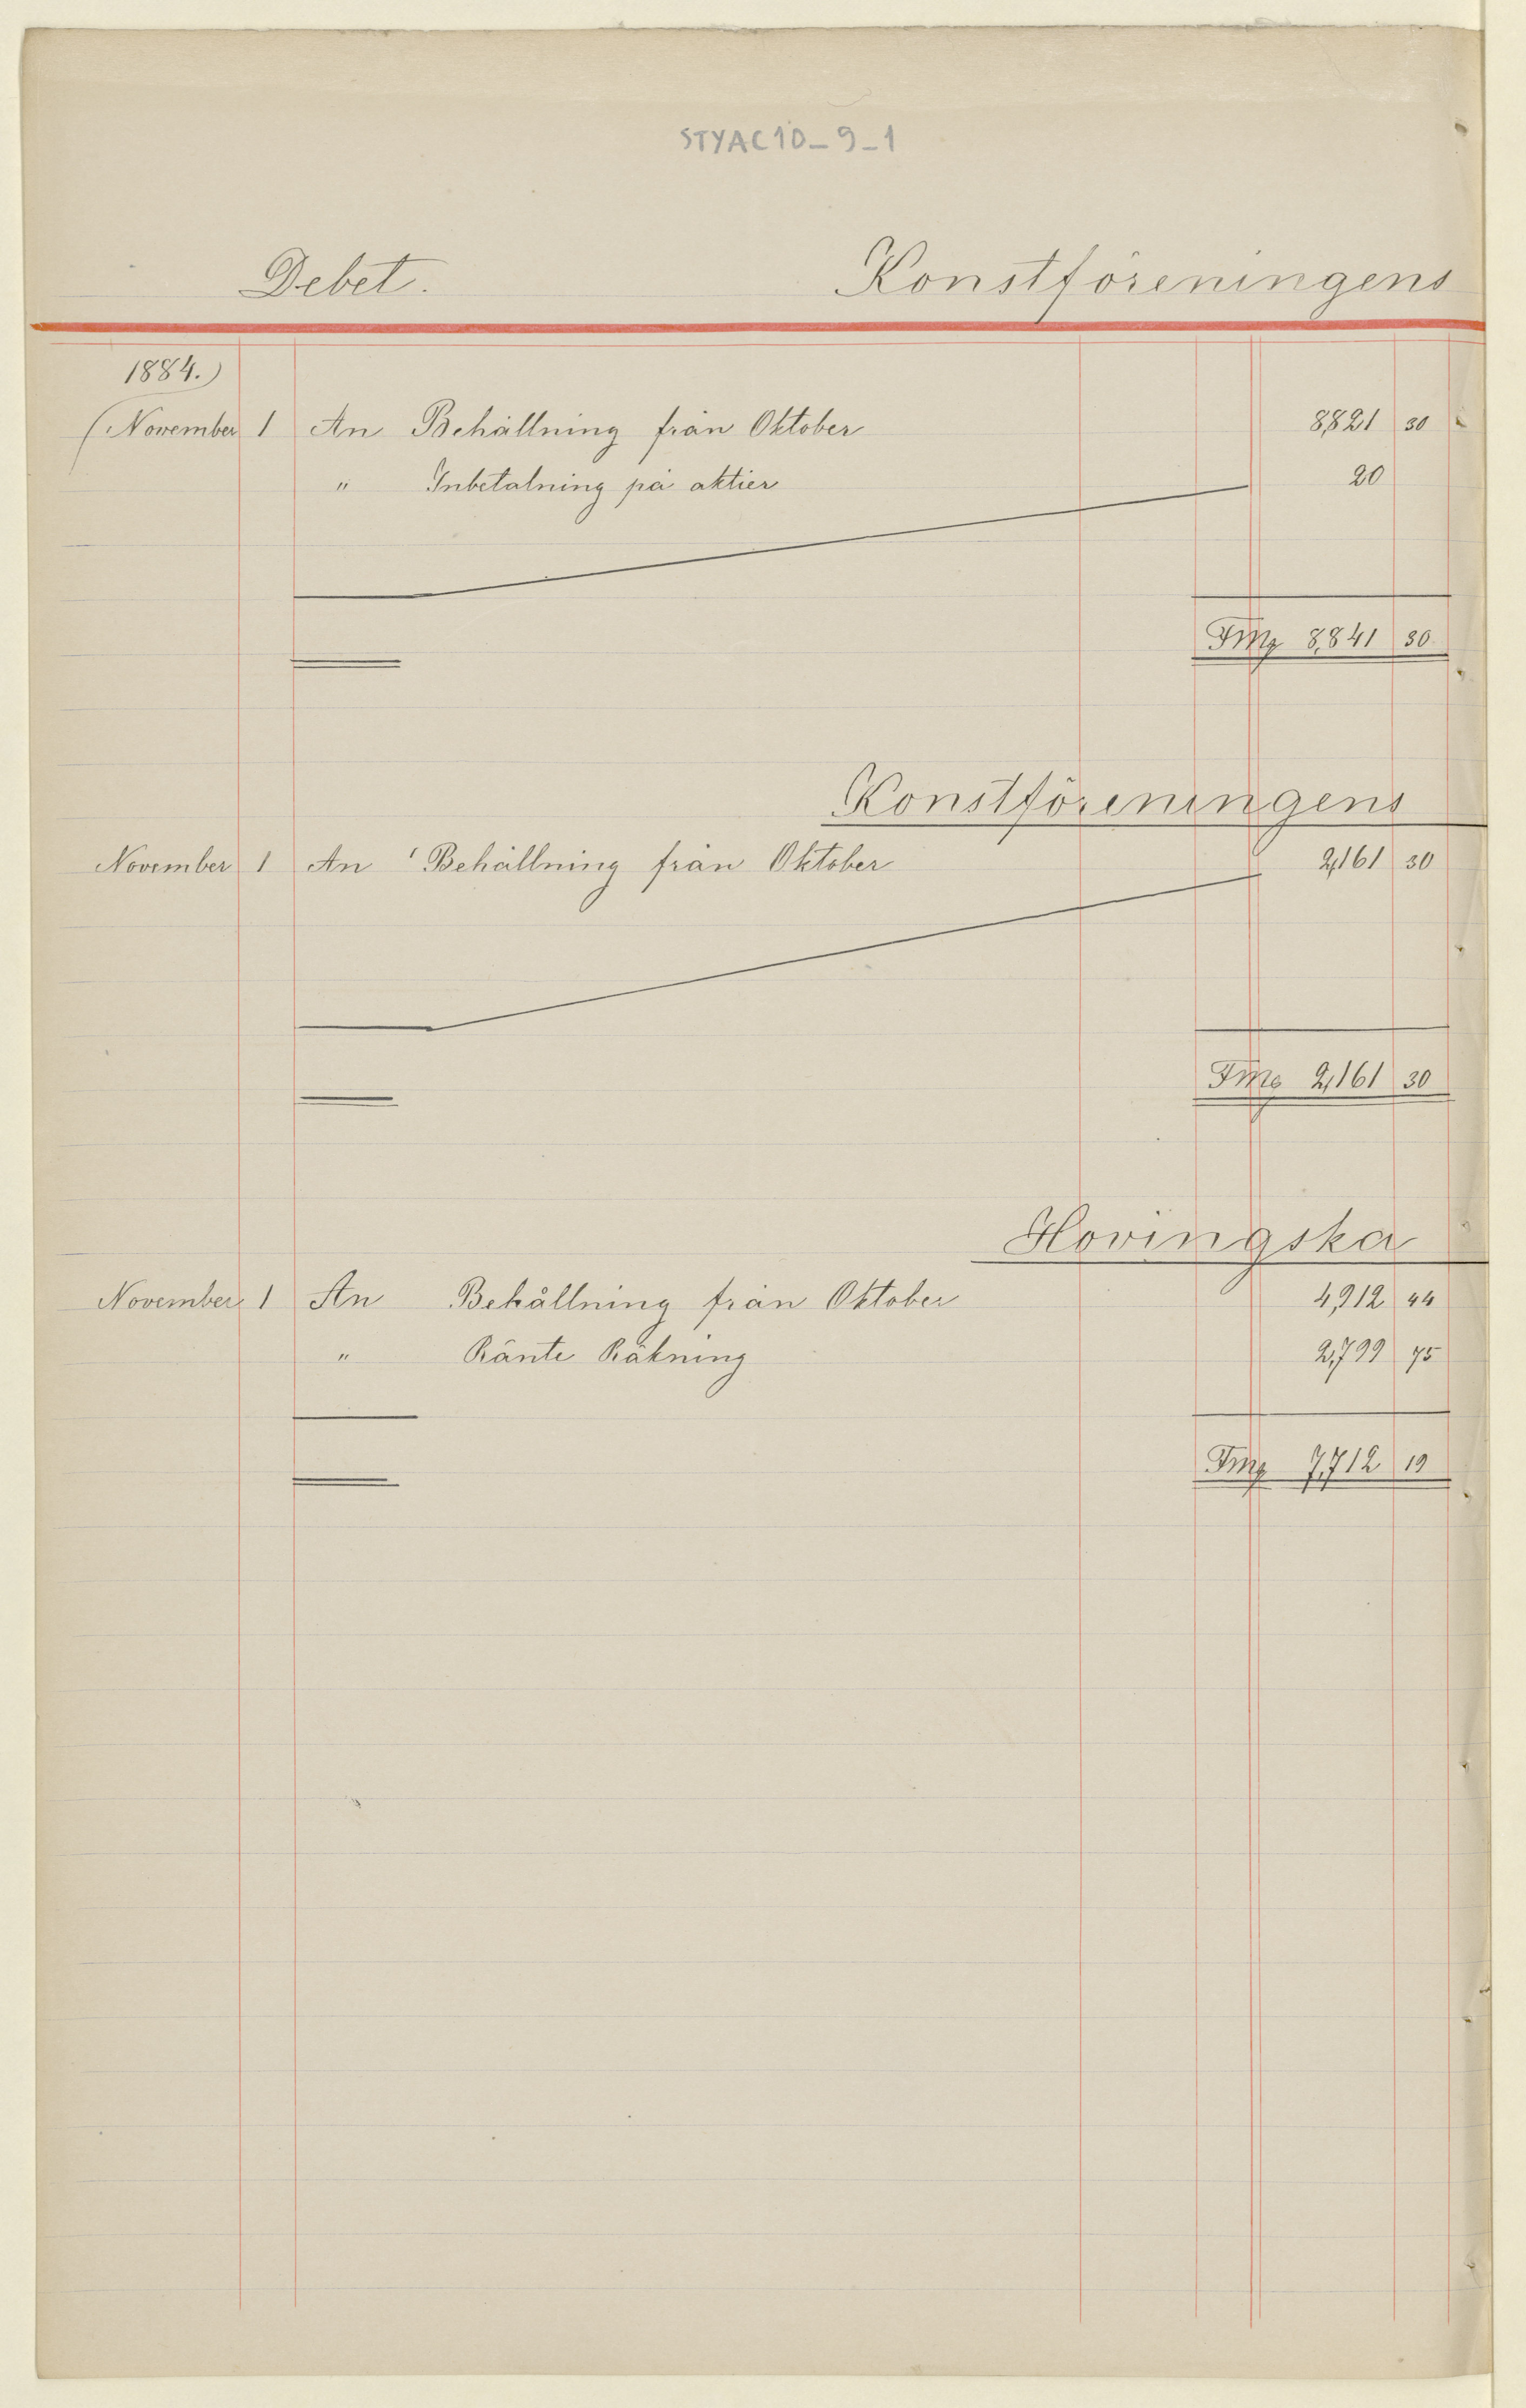 STYAC10_9_1
Debet. Konstföreningens
1884.)
(November 1 An Behållning från Oktober 8,821 30
" Inbetalning på aktier 20
Fmg 8,841 30
Konstföreningens
November 1 An Behållning från Oktober 2,161 30
Fmg 2,161 30
Hovingska
November 1 An Behållning från Oktober 4,912 44
" Ränte Räkning 2,799 75
Fmg 7,712 19